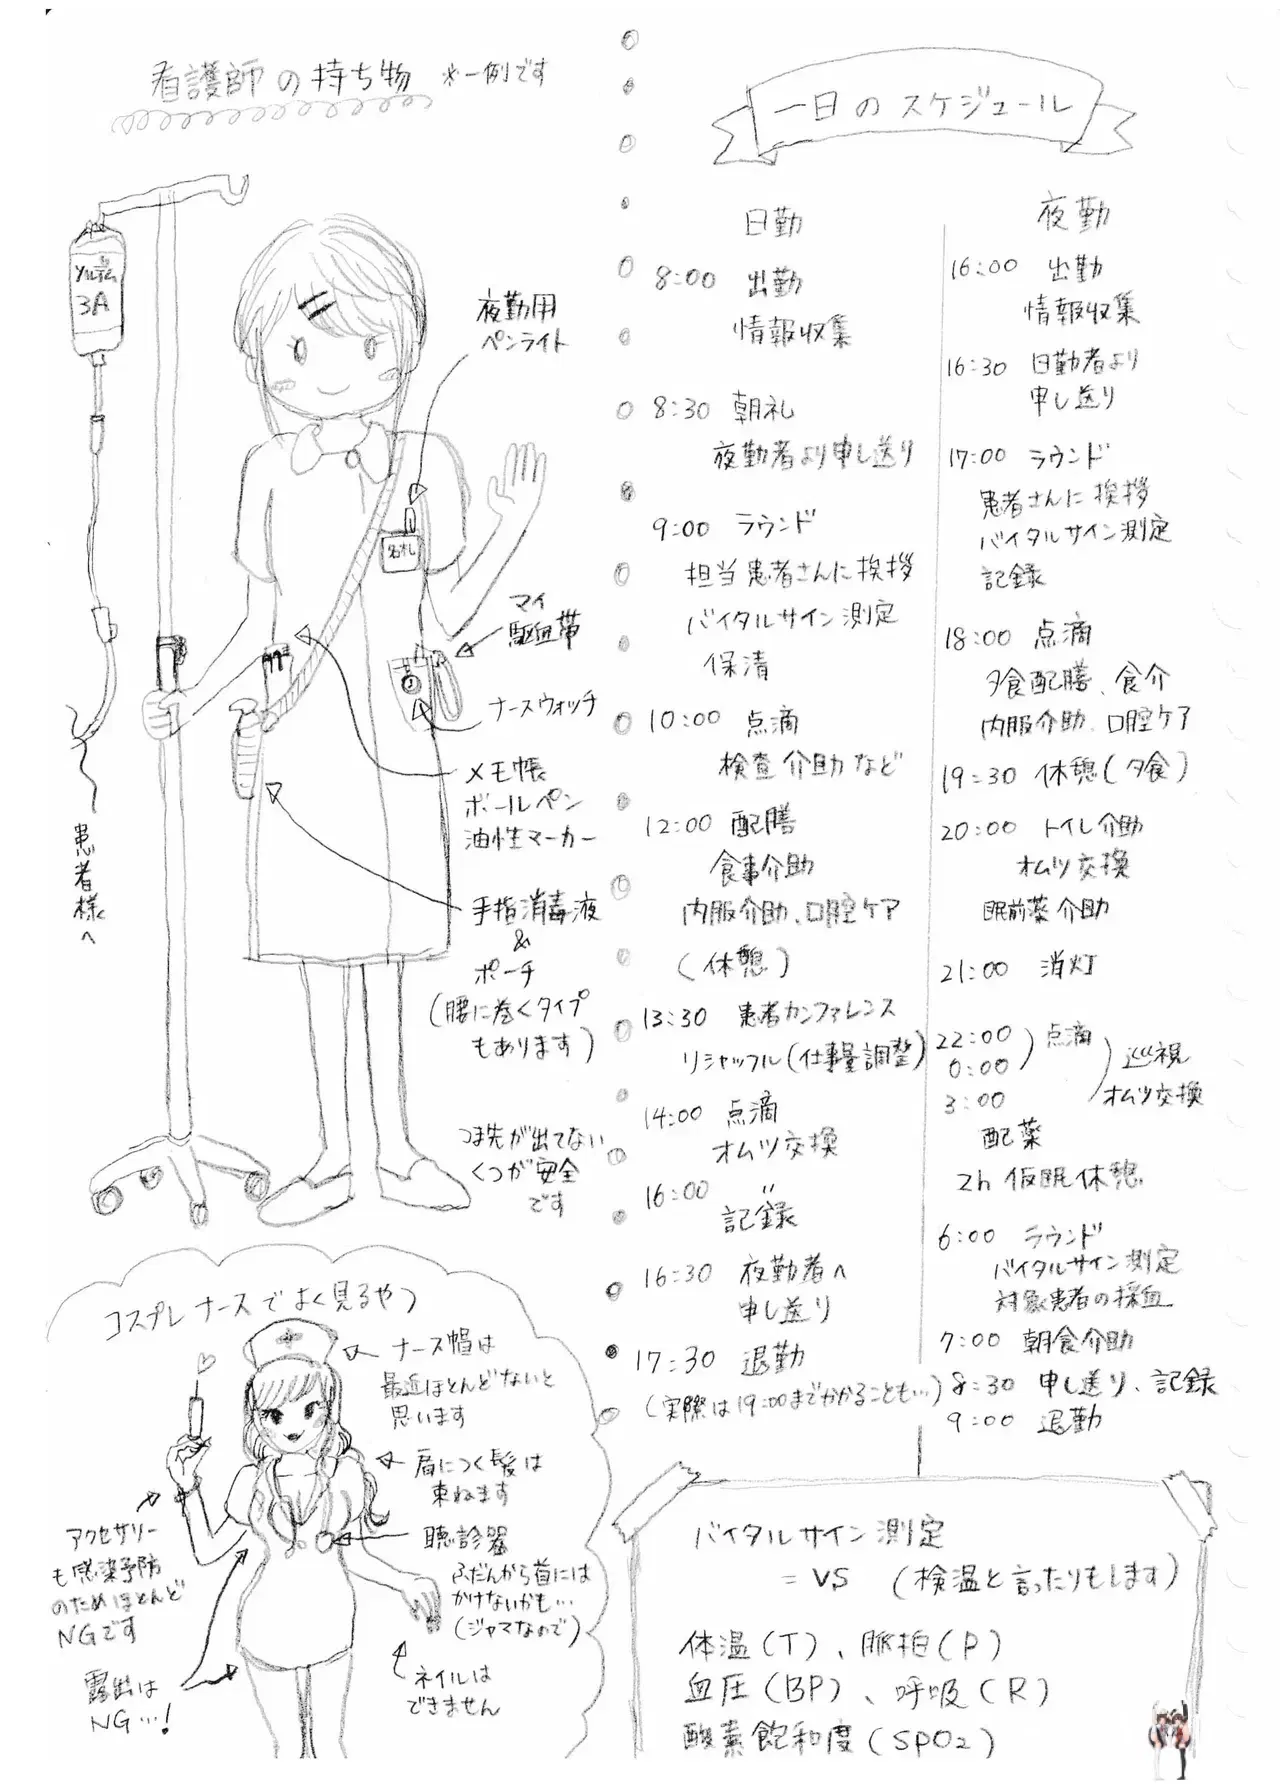 看護師の持ち物 *一例です
ソルデム
3A
夜勤用
ペンライト
名札
マイ
駆血帯
ナースウォッチ
メモ帳
ボールペン
油性マーカー
手指消毒液
&
ポーチ
(腰に巻くタイプ
もあります)
患者様へ
つま先が出てない
くつが安全
です
コスプレナースでよく見るやつ
ナース帽は
最近ほとんどないと
思います
肩につく髪は
束ねます
聴診器
ふだんから首には
かけないかも…
(ジャマなので)
ネイルは
できません
アクセサリー
も感染予防
のためほとんど
NGです
露出は
NG…!
一日のスケジュール
日勤
8:00 出勤
情報収集
8:30 朝礼
夜勤者より申し送り
9:00 ラウンド
担当患者さんに挨拶
バイタルサイン測定
保清
10:00 点滴
検査介助など
12:00 配膳
食事介助
内服介助、口腔ケア
(休憩)
13:30 患者カンファレンス
リシャッフル(仕事量調整)
14:00 点滴
オムツ交換
16:00 〃
記録
16:30 夜勤者へ
申し送り
17:30 退勤
(実際は19:00までかかることも…)
夜勤
16:00 出勤
情報収集
16:30 日勤者より
申し送り
17:00 ラウンド
患者さんに挨拶
バイタルサイン測定
記録
18:00 点滴
夕食配膳、食介
内服介助、口腔ケア
19:30 休憩(夕食)
20:00 トイレ介助
オムツ交換
眠前薬介助
21:00 消灯
22:00
0:00 ) 点滴
3:00 ) 巡視
オムツ交換
配薬
2h 仮眠休憩
6:00 ラウンド
バイタルサイン測定
対象患者の採血
7:00 朝食介助
8:30 申し送り、記録
9:00 退勤
バイタルサイン測定
= VS (検温と言ったりもします)
体温(T)、脈拍(P)
血圧(BP)、呼吸(R)
酸素飽和度(SPO2)